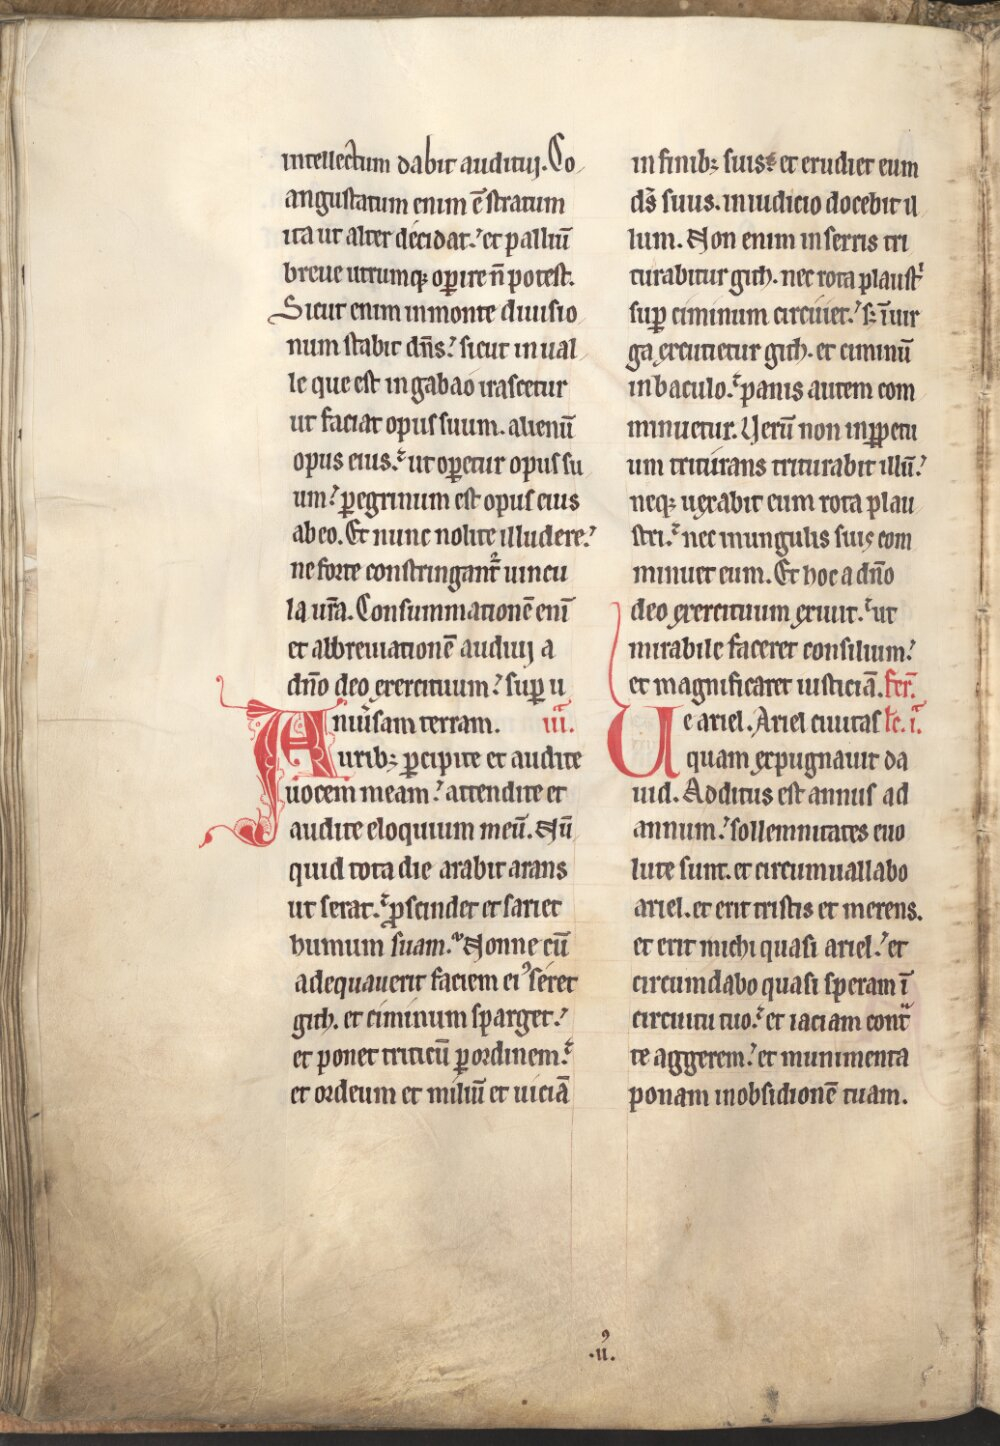 intellectum dabit auditui. Co
angustatum enim ē stratum
ita ut alter decidat. et palliū
breue utrumq; operire n̄ potest.
Sicut enim in monte diuisio
num stabit dn̄s. sicut in ual
le que est in gabao irascetur
ut faciat opus suum. alienū
opus eius. ut operetur opus su
um. peregrinum est opus eius
ab eo. Et nunc nolite illudere.
ne forte constringant᷑ uincu
la ur̄a. Consummationē enī
et abbreuiationē audiuj a
dn̄o deo exercituum. sup u
niūsam terram. iii.
Aurib; pcipite et audite
uocem meam. attendite et
audite eloquium meū. Nū
quid tota die arabit arans
ut serat. pscindet et sariet
humum suam. Nonne cū
adequauerit faciem ei᾽ seret
gith. et ciminum sparget.
et ponet triticū p ordinem.
et ordeum et miliū et uiciā
in finib; suis. et erudiet eum
ds̄ suus. in iudicio docebit il
lum. Non enim in serris tri
turabitur gith. nec rota plaustⁱ
sup ciminum circuiet. s; ī uir
ga excutietur gith. et ciminū
in baculo. panis autem com
minuetur. Verū non in ppetu
um triturans triturabit illū.
neq; uexabit eum rota plau
stri. nec in ungulis suis com
minuet eum. Et hoc a dn̄o
deo exercituum exiuit. ut
mirabile faceret consilium.
et magnificaret iusticiā. fer̄.
Ue ariel. Ariel ciuitas lc̄. i.
quam expugnauit da
uid. Additus est annus ad
annum. sollemnitates euo
lute sunt. et circumuallabo
ariel. et erit tristis et merens.
et erit michi quasi ariel. et
circumdabo quasi speram ī
circuitu tuo. et iaciam contᵃ
te aggerem. et munimenta
ponam in obsidionē tuam.
.ii᾽.